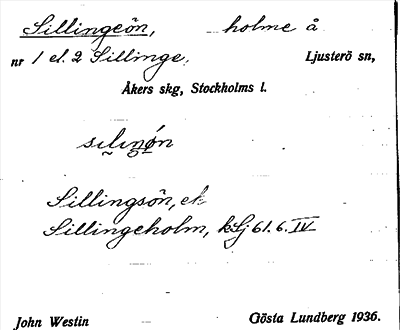 Sillingeön, holme å
nr 1 el. 2 Sillinge, Ljusterö sn,
Åkers skg, Stockholms l.
Sillingsön, ek
Sillingeholm, kLj 61.6.IV
John Westin Gösta Lundberg 1936.